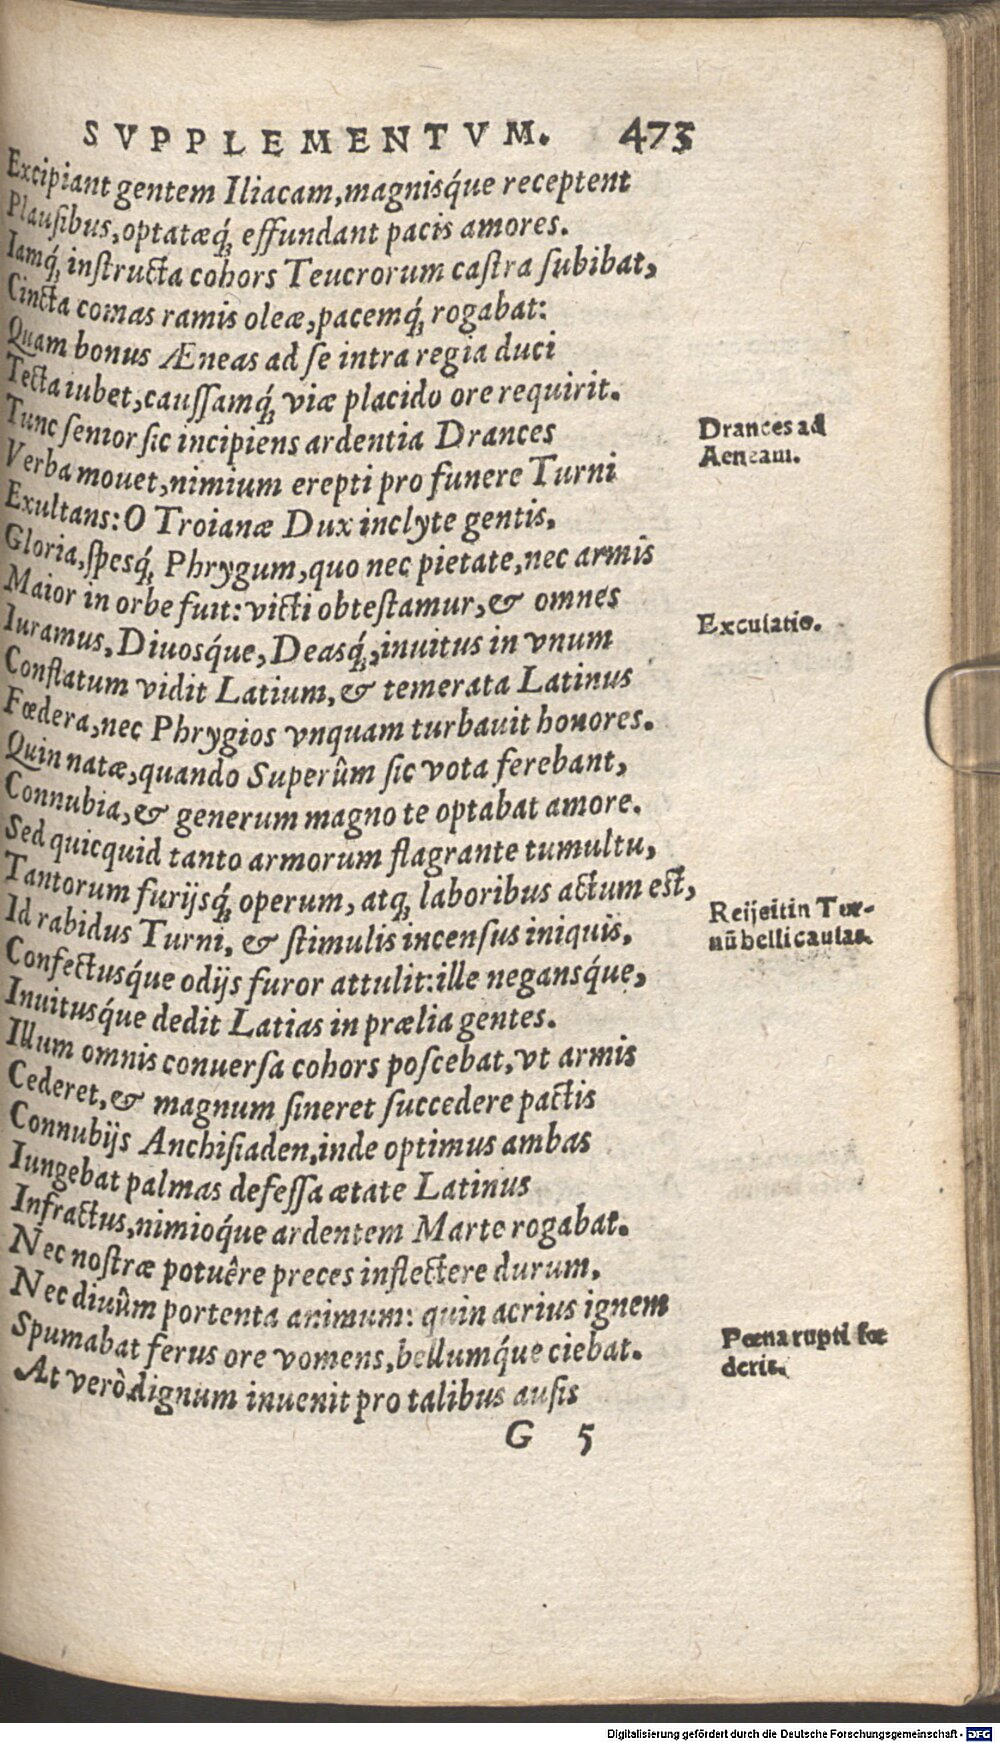 SVPPLEMENTVM. 473
Excipiant gentem Iliacam, magnisq́ue receptent
Plausibus, optatæq́; effundant pacis amores.
Iamq́; instructa cohors Teucrorum castra subibat,
Cincta comas ramis oleæ, pacemq́; rogabat:
Quam bonus Æneas ad se intra regia duci
Tecta iubet, caussamq́; viæ placido ore requirit.
Tunc senior sic incipiens ardentia Drances
Verba mouet, nimium erepti pro funere Turni
Exultans: O Troianæ Dux inclyte gentis,
Gloria, spesq́; Phrygum, quo nec pietate, nec armis
Maior in orbe fuit: victi obtestamur, & omnes
Iuramus, Diuosq́ue, Deasq́;, inuitus in vnum
Conflatum vidit Latium, & temerata Latinus
Fœdera, nec Phrygios vnquam turbauit honores.
Quin natæ, quando Superûm sic vota ferebant,
Connubia, & generum magno te optabat amore.
Sed quicquid tanto armorum flagrante tumultu,
Tantorum furijsq́; operum, atq; laboribus actum est,
Id rabidus Turni, & stimulis incensus iniquis,
Confectusq́ue odijs furor attulit: ille negansq́ue,
Inuitusq́ue dedit Latias in prælia gentes.
Illum omnis conuersa cohors poscebat, vt armis
Cederet, & magnum sineret succedere pactis
Connubijs Anchisiaden, inde optimus ambas
Iungebat palmas defessa ætate Latinus
Infractus, nimioq́ue ardentem Marte rogabat.
Nec nostræ potuêre preces inflectere durum,
Nec diuûm portenta animum: quin acrius ignem
Spumabat ferus ore vomens, bellumq́ue ciebat.
At verò dignum inuenit pro talibus ausis
G 5
Drances ad
Aeneam.
Excusatio.
Reijcit in Tur-
nũ belli causas.
Pœna rupti fœ
deris.
Digitalisierung gefördert durch die Deutsche Forschungsgemeinschaft - DFG